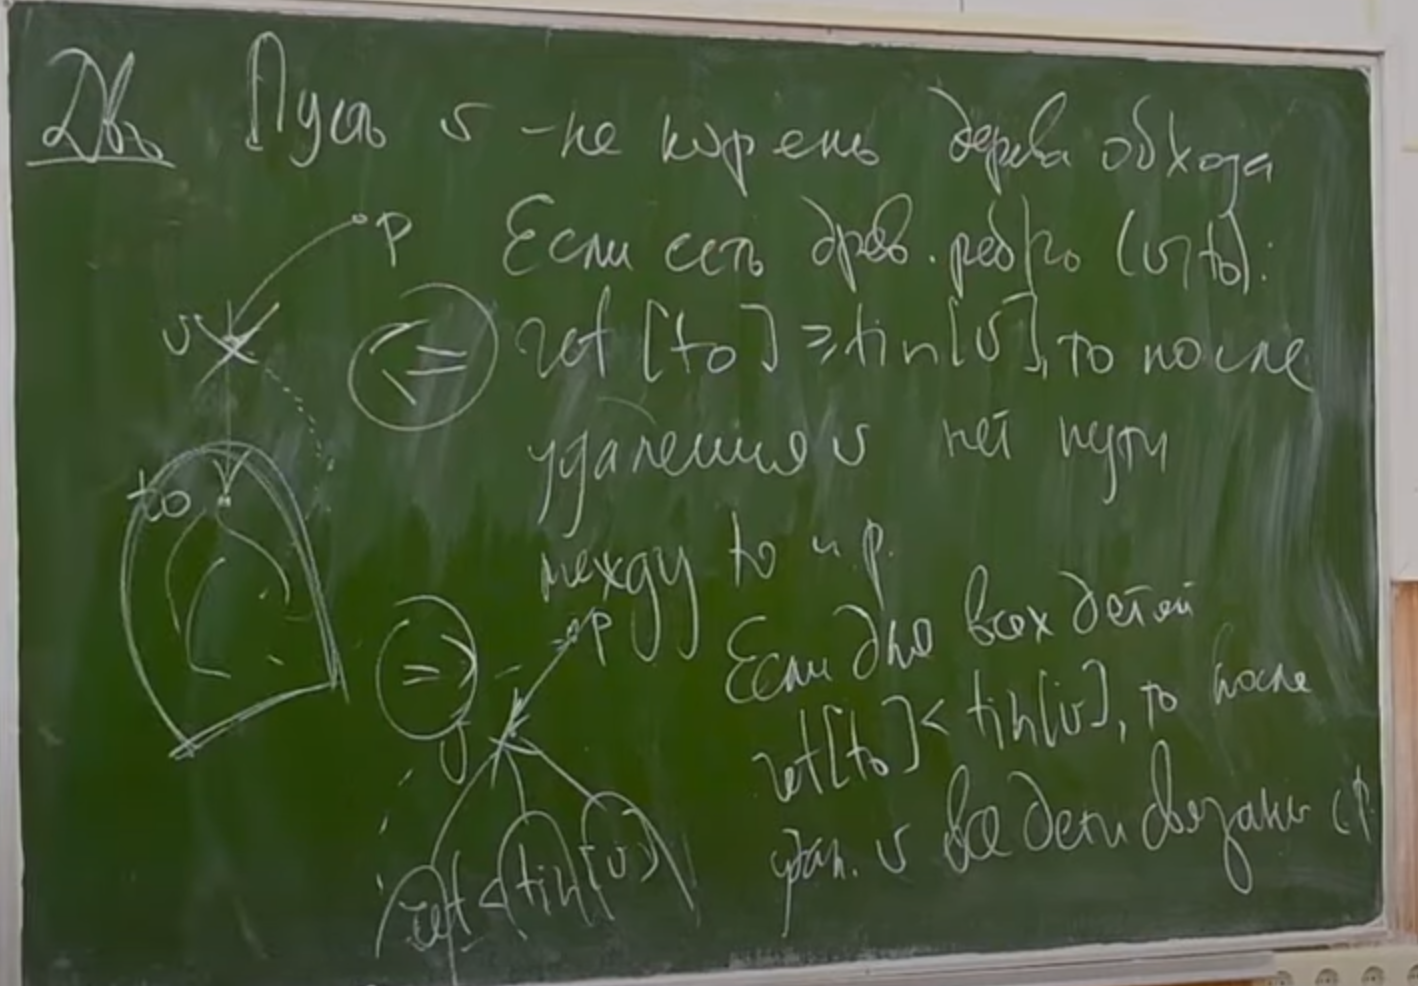 Дв Пусть v - не корень дерева обхода
p
Если есть древ. ребро (v, to):
v
<=
ret [to] ≥ tin[v], то после
удаления v нет пути
to
между to и p.
=>
p
Если для всех детей
ret[to] < tin[v], то после
v
уд. v все дети связаны с p.
ret < tin[v]